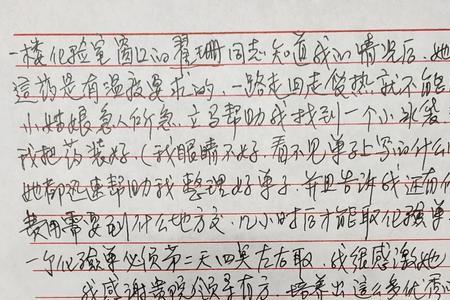 一楼化验室窗口的翟珊同志知道我的情况后，她
這药是有温度要求的，一路走回走发热，就不能
小姑娘急人所急，立马帮助我找到一个小冰袋
我把药装好（我眼睛不好，看不见单子上写的什么
她都迅速帮助我整理好单子，并且告诉我还有
费用需要到什么地方交，几小时后才能取化验单
一个化验单必须第二天四点左右取，我很感激她
我感谢贵院领导有方，培养出這么多优秀